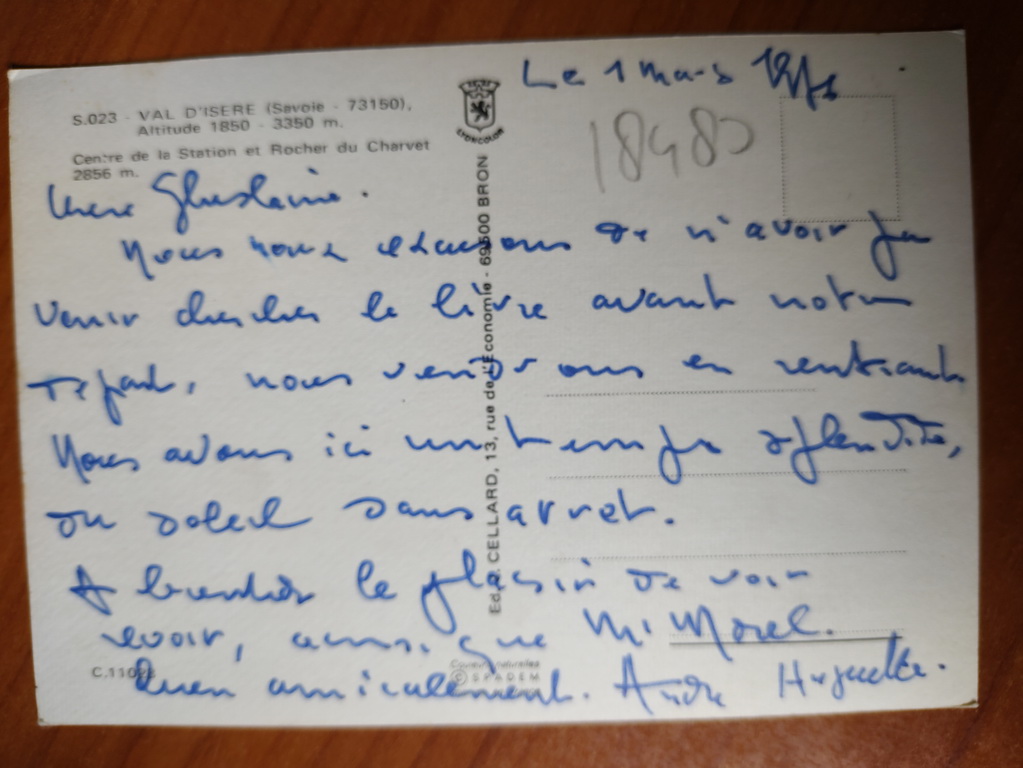 S.023 - VAL D'ISERE (Savoie - 73150),
Altitude 1850 - 3350 m.
Centre de la Station et Rocher du Charvet
2856 m.
LYONCOLOR
Le 1 Mars
18480
Chere Ghislaine.
Nous nous excusons de n'avoir pu
venir chercher le livre avant notre
départ, nous viendrons en rentrant.
Nous avons ici un temps splendide,
du soleil sans arret.
A bientôt le plaisir de vous
revoir, ainsi que Mr Morel.
bien amicalement. André Huguette.
Edit. CELLARD, 13, rue de l'Économie - 69500 BRON
Couleurs naturelles
© SPADEM